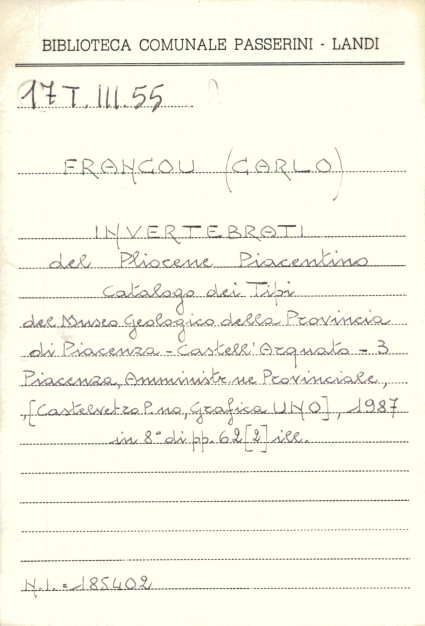 BIBLIOTECA COMUNALE PASSERINI - LANDI
17 T. III. 55
FRANCOU (CARLO)
INVERTEBRATI
del Pliocene Piacentino
Catalogo dei Tipi
del Museo Geologico della Provincia
di Piacenza - Castell'Arquato - 3
Piacenza, Amministr.ne Provinciale,
,[Castelvetro P.no, Grafica UNO], 1987
in 8° di pp. 62 [2] ill.
N.I. = 185402